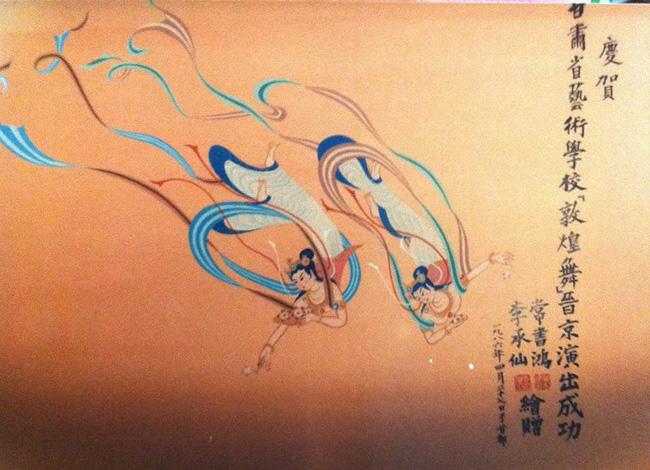 慶賀
甘肅省藝術學校「敦煌舞」晉京演出成功
常書鴻
李承仙
繪贈
一九八六年四月二十九日于首都